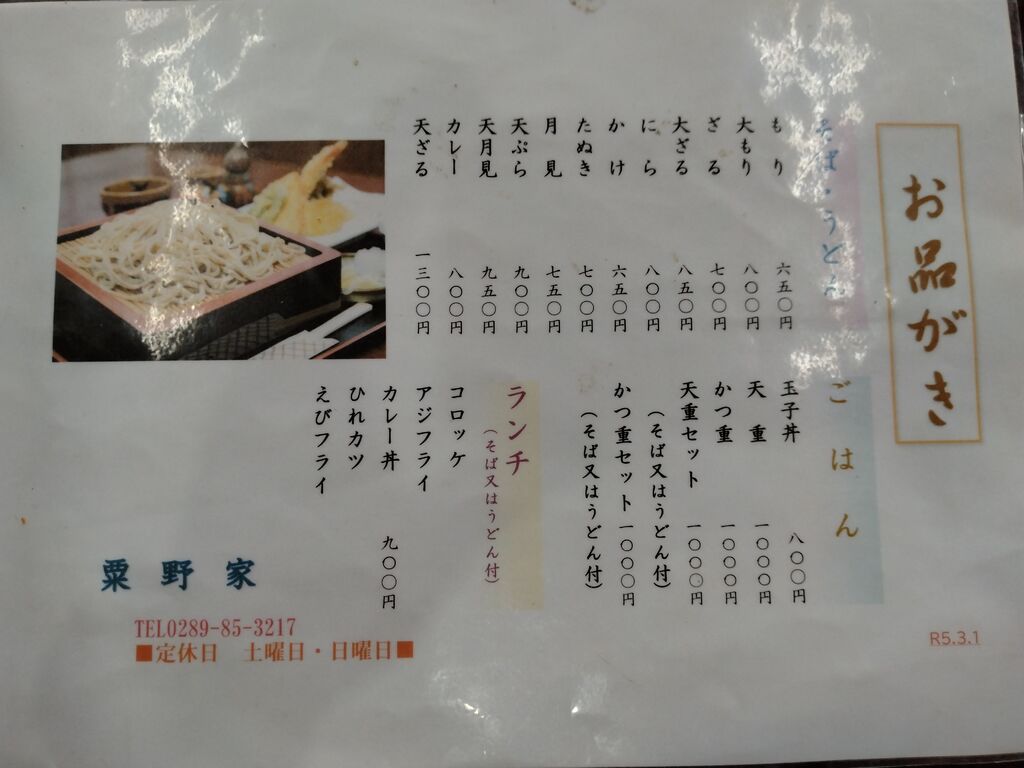 お品がき
そば・うどん
もり 六五〇円
大もり 八〇〇円
ざる 七〇〇円
大ざる 八五〇円
にら 八〇〇円
かけ 六五〇円
たぬき 七〇〇円
月見 七五〇円
天ぷら 九〇〇円
天月見 九五〇円
カレー 八〇〇円
天ざる 一三〇〇円
ごはん
玉子丼 八〇〇円
天重 一〇〇〇円
かつ重 一〇〇〇円
天重セット 一〇〇〇円
(そば又はうどん付)
かつ重セット 一〇〇〇円
(そば又はうどん付)
ランチ
(そば又はうどん付)
コロッケ
アジフライ
カレー丼 九〇〇円
ひれカツ
えびフライ
粟野家
TEL0289-85-3217
■定休日 土曜日・日曜日■
R5.3.1